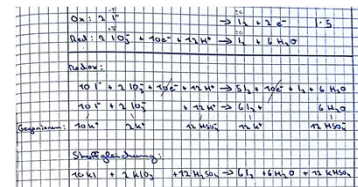 Ox: 2 I⁻ → I₂ + 2 e⁻ | · 5
Red: 2 IO₃⁻ + 10 e⁻ + 12 H⁺ → I₂ + 6 H₂O
Redox:
10 I⁻ + 2 IO₃⁻ + 10 e⁻ + 12 H⁺ → 5 I₂ + 10 e⁻ + I₂ + 6 H₂O
10 I⁻ + 2 IO₃⁻ + 12 H⁺ → 6 I₂ + 6 H₂O
10 K⁺ 2 K⁺ 12 HSO₄⁻ 12 K⁺ 12 HSO₄⁻
Stoffgleichung:
10 KI + 2 KIO₃ + 12 H₂SO₄ → 6 I₂ + 6 H₂O + 12 KHSO₄